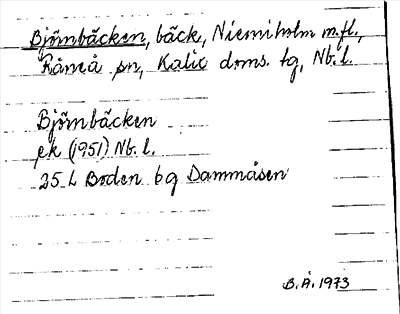 Björnbäcken, bäck, Niemiholm m.fl.,
Råneå sn, Kalix doms. tg, Nb. l.
Björnbäcken
ek (1951) Nb. l.
25 L Boden 6g Dammåsen
B.Å. 1973